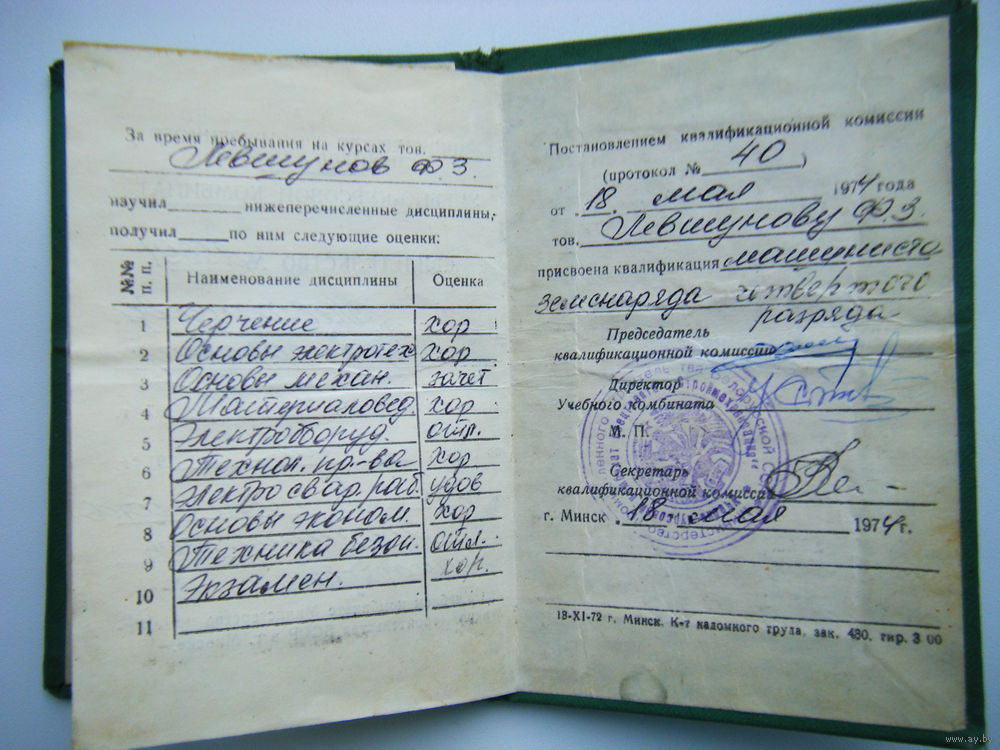 За время пребывания на курсах тов.
Левшунов Ф.З.
изучил нижеперечисленные дисциплины,
получил по ним следующие оценки:
№№ п. п. Наименование дисциплины Оценка
1 Черчение хор
2 Основы электротех хор
3 Основы механ. зачет
4 Материаловед. хор
5 Электрооборуд. отл.
6 Технол. пр-ва хор
7 Электросвар. раб. удов
8 Основы эконом. хор
9 Техника безоп. отл.
10 Экзамен. хор.
11
Постановлением квалификационной комиссии
(протокол № 40)
от 18 мая 1974 года
тов. Левшунову Ф.З.
присвоена квалификация машиниста
земснаряда четвертого
разряда
Председатель
квалификационной комиссии
Директор
Учебного комбината
М. П.
Секретарь
квалификационной комиссии
г. Минск 18 мая 1974 г.
18-XI-72 г. Минск. К-т надомного труда, зак. 480, тир. 3 00
www.ay.by